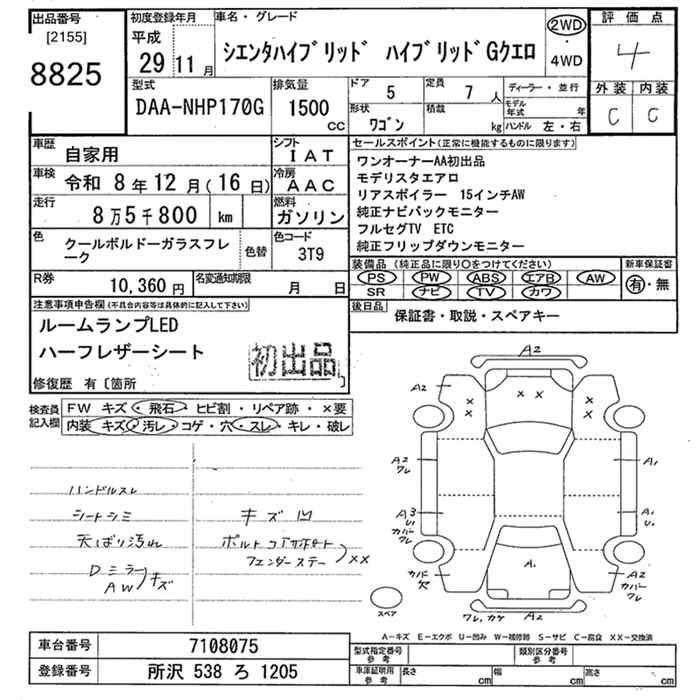 出品番号
[2155]
8825
初度登録年月
平成
29年
11月
車名・グレード
シエンタハイブリッド ハイブリッドGクエロ
2WD
・
4WD
評価点
4
外装 内装
C C
型式
DAA-NHP170G
排気量
1500
CC
ドア
5
定員
7人
形状
ワゴン
積載
kg
ディーラー・並行
モデル年式 年
ハンドル 左・右
車歴
自家用
シフト
IAT
車検
令和 8年12月(16日)
冷房
AAC
走行
8万5千800 km
燃料
ガソリン
色
クールボルドーガラスフレーク
色替
色コード
3T9
R券
10,360円
名変通知期限
月 日
セールスポイント(正常に機能するものに限ります)
ワンオーナーAA初出品
モデリスタエアロ
リアスポイラー 15インチAW
純正ナビバックモニター
フルセグTV ETC
純正フリップダウンモニター
装備品(純正品に限り○をつけてください)
新車保証書
PS PW ABS エアB AW
SR ナビ TV カワ
有・無
後日品
保証書・取説・スペアキー
注意事項申告欄(不具合内容等は具体的に記入して下さい)
ルームランプLED
ハーフレザーシート
初出品
修復歴 有〔箇所 〕
検査員記入欄
FW キズ・飛石・ヒビ割・リペア跡・×要
内装 キズ・汚レ・コゲ・穴・スレ・キレ・破レ
ハンドルスレ
シートシミ
天ばり汚れ
Dミラー
AW
キズ
キズ凹
ボルト
フェンダーステー
XX
A2
A2
A2
× ×
×
×
×
×
A2
ワレ
A1
A3
U1
カバー
ワレ
A1
U1
A1
カバー
欠
A2
カバー
ワレ
ワレ,カケ A2
スペア
A－キズ E－エクボ U－凹み W－補修跡 S－サビ C－腐食 XX－交換済
車台番号
7108075
登録番号
所沢 538 ろ 1205
型式指定番号
参考
類別区分番号
参考
車庫証明用
参考
長さ cm
幅 cm
高さ cm